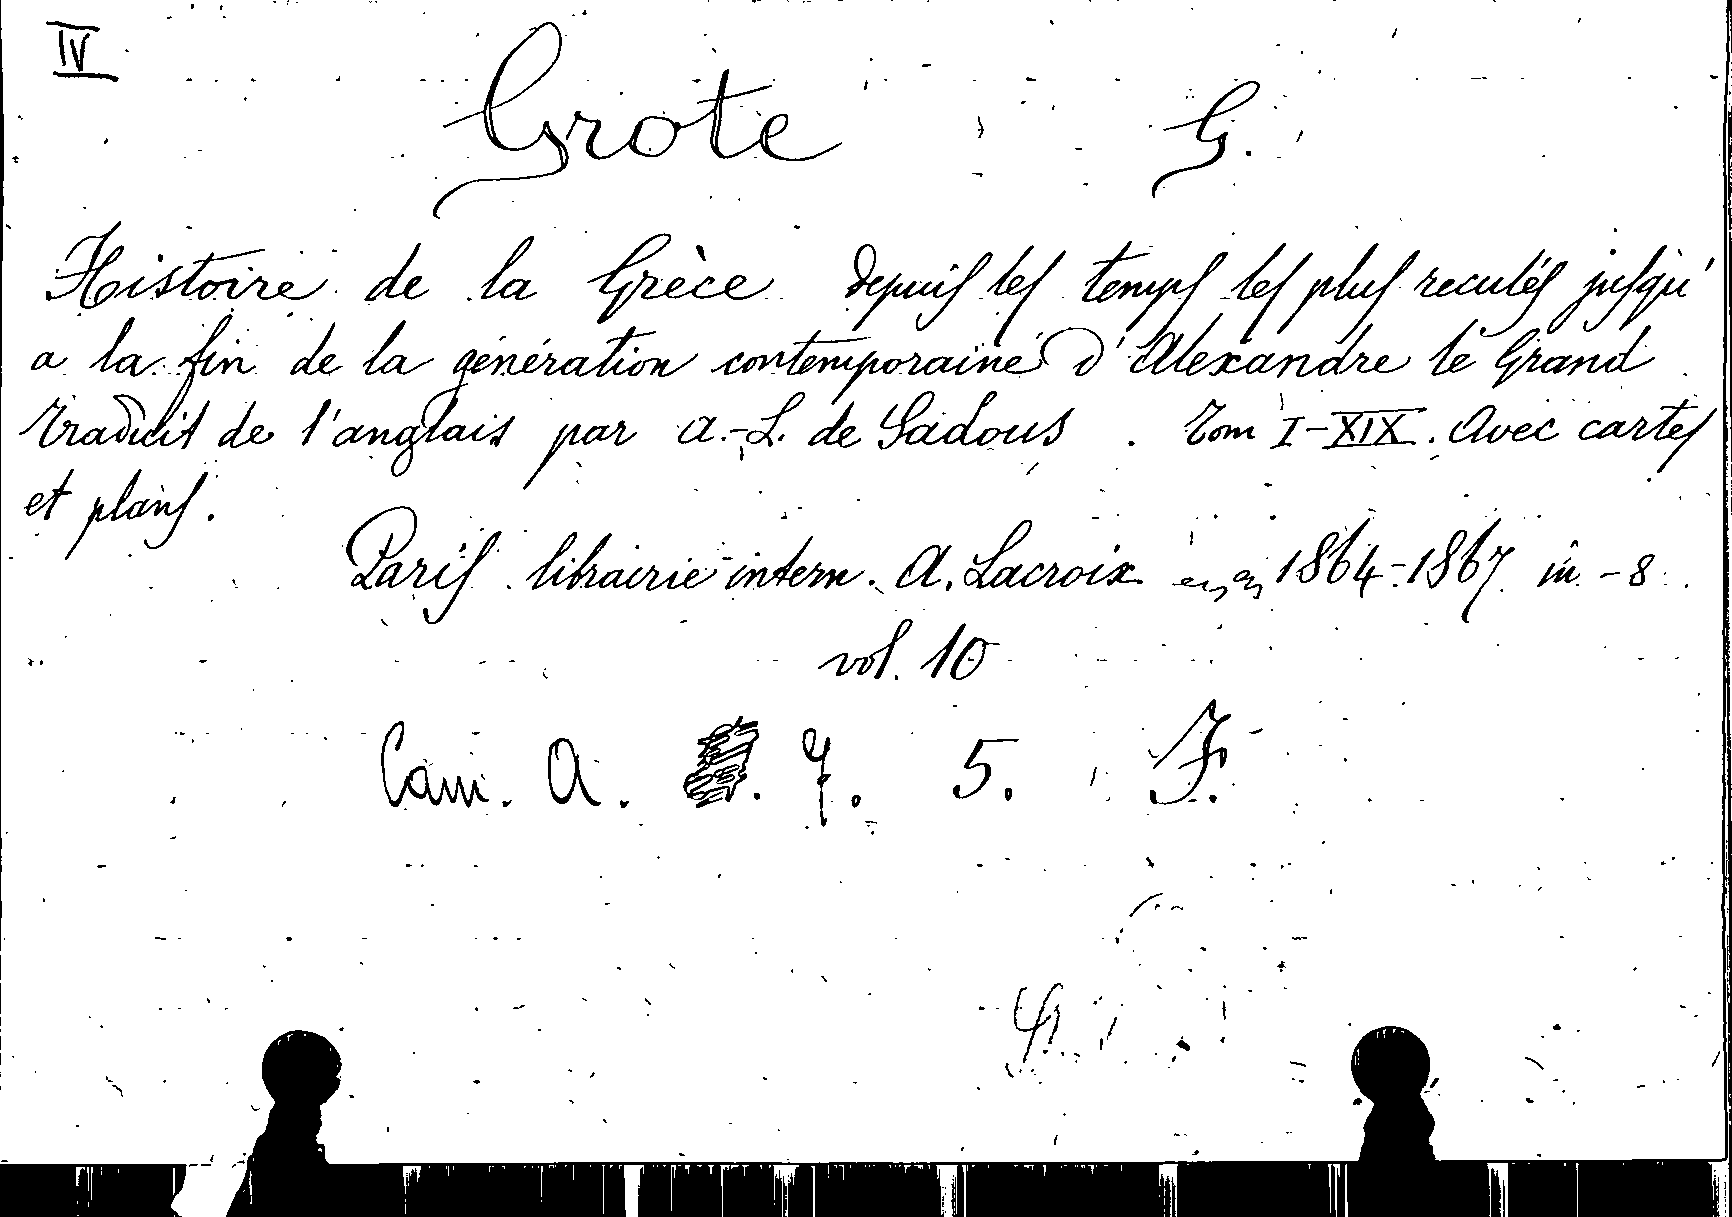 IV
Grote G.
Histoire de la Grèce depuis les temps les plus reculés jusqu'
a la fin de la génération contemporaine d'Alexandre le Grand
traduit de l'anglais par A.-L. de Sadous. Tom I-XIX. Avec cartes
et plans.
Paris librairie intern. A. Lacroix 1864-1867 in-8
vol. 10
Cam. A. 7. 5. F.